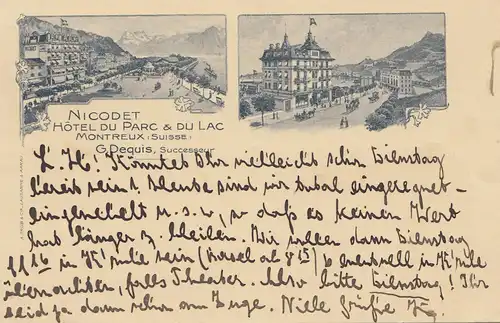 NICODET
HÔTEL DU PARC & DU LAC
MONTREUX (SUISSE)
G. Dequis, Successeur
L. H! Könntet Ihr vielleicht schon Dienstag
bereit sein? Heute sind wir total eingeregnet -
eingenebelt u. s. w, so daß es keinen Wert
hat länger z. bleiben. Wir wollen dann Dienstag
11 16 in K'ruhe sein (Basel ab 8 15) & eventuell in K'ruhe
übernachten, falls Theater. Also bitte Dienstag! Ihr
seid ja dann schon am Zuge. Viele Grüße